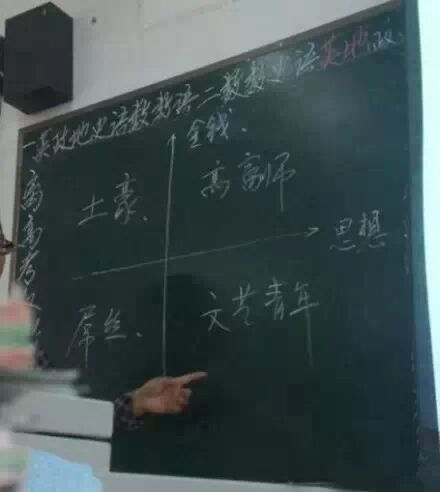 一英政地史语数数语二数数史语英地政
金钱
离高考
土豪、
高富师
思想
屌丝、
文艺青年